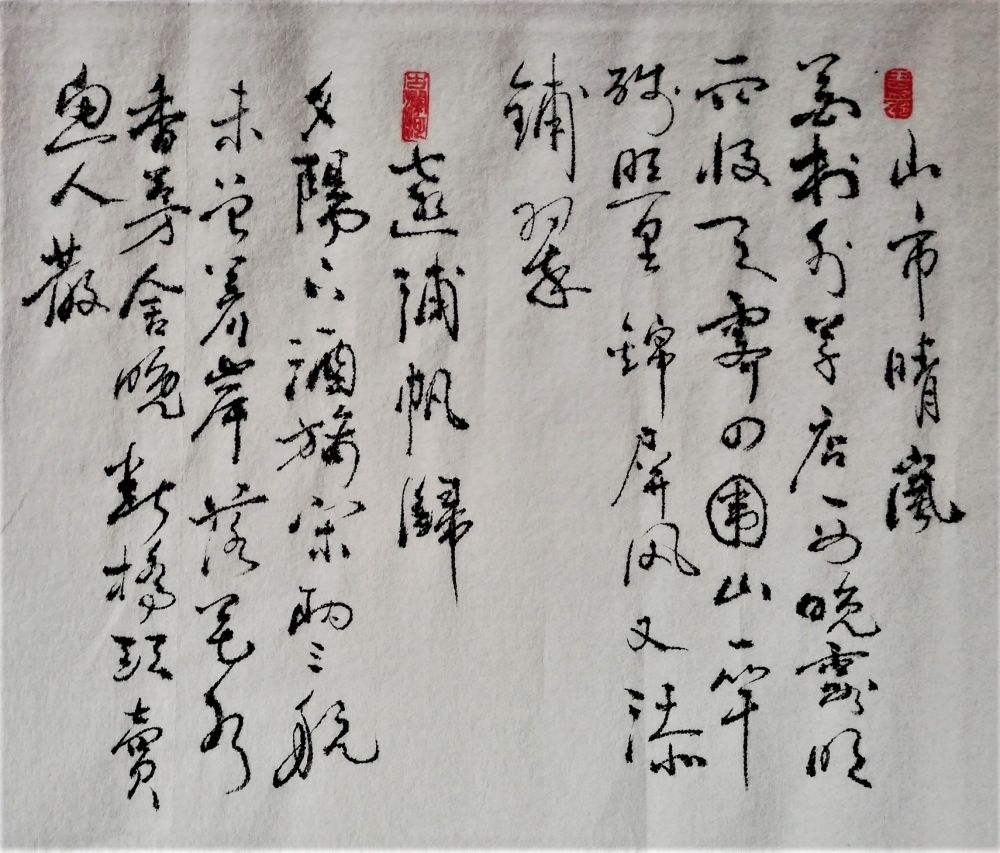 山市晴嵐
花村外草店西晚霞明
雨收天霽四圍山一竿
残照里錦屏风又添
鋪翠
遠浦帆歸
夕陽下酒旆閑兩三航
未曾着岸落花水
香茅舍晚断橋頭賣
魚人散